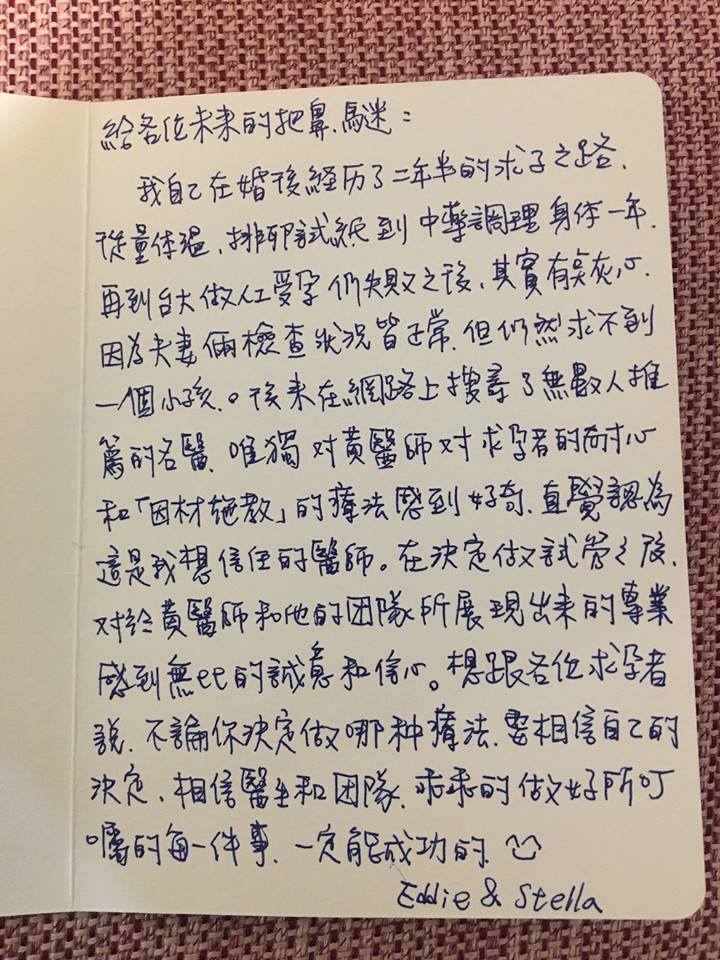 給各位未来的把鼻、馬迷：
我自己在婚後経历了二年半的求子之路、
從量体温、排卵試紙到中藥調理身体一年、
再到台大做人工受孕仍失敗之後、其實有点灰心、
因為夫妻倆檢查狀況皆正常、但仍然求不到
一個小孩。後来在網路上搜尋了無數人推
薦的名醫、唯獨対黃醫師対求孕者的耐心
和「因材施教」的療法感到好奇、直覺認為
這是我想信任的醫師。在決定做試管之後、
対於黃醫師和他的团隊所展現出来的專業
感到無比的誠意和信心。想跟各位求孕者
說、不論你決定做哪种療法、要相信自己的
決定、相信醫生和团隊、乖乖的做好所叮
嚀的每一件事、一定能成功的
Eddie & Stella